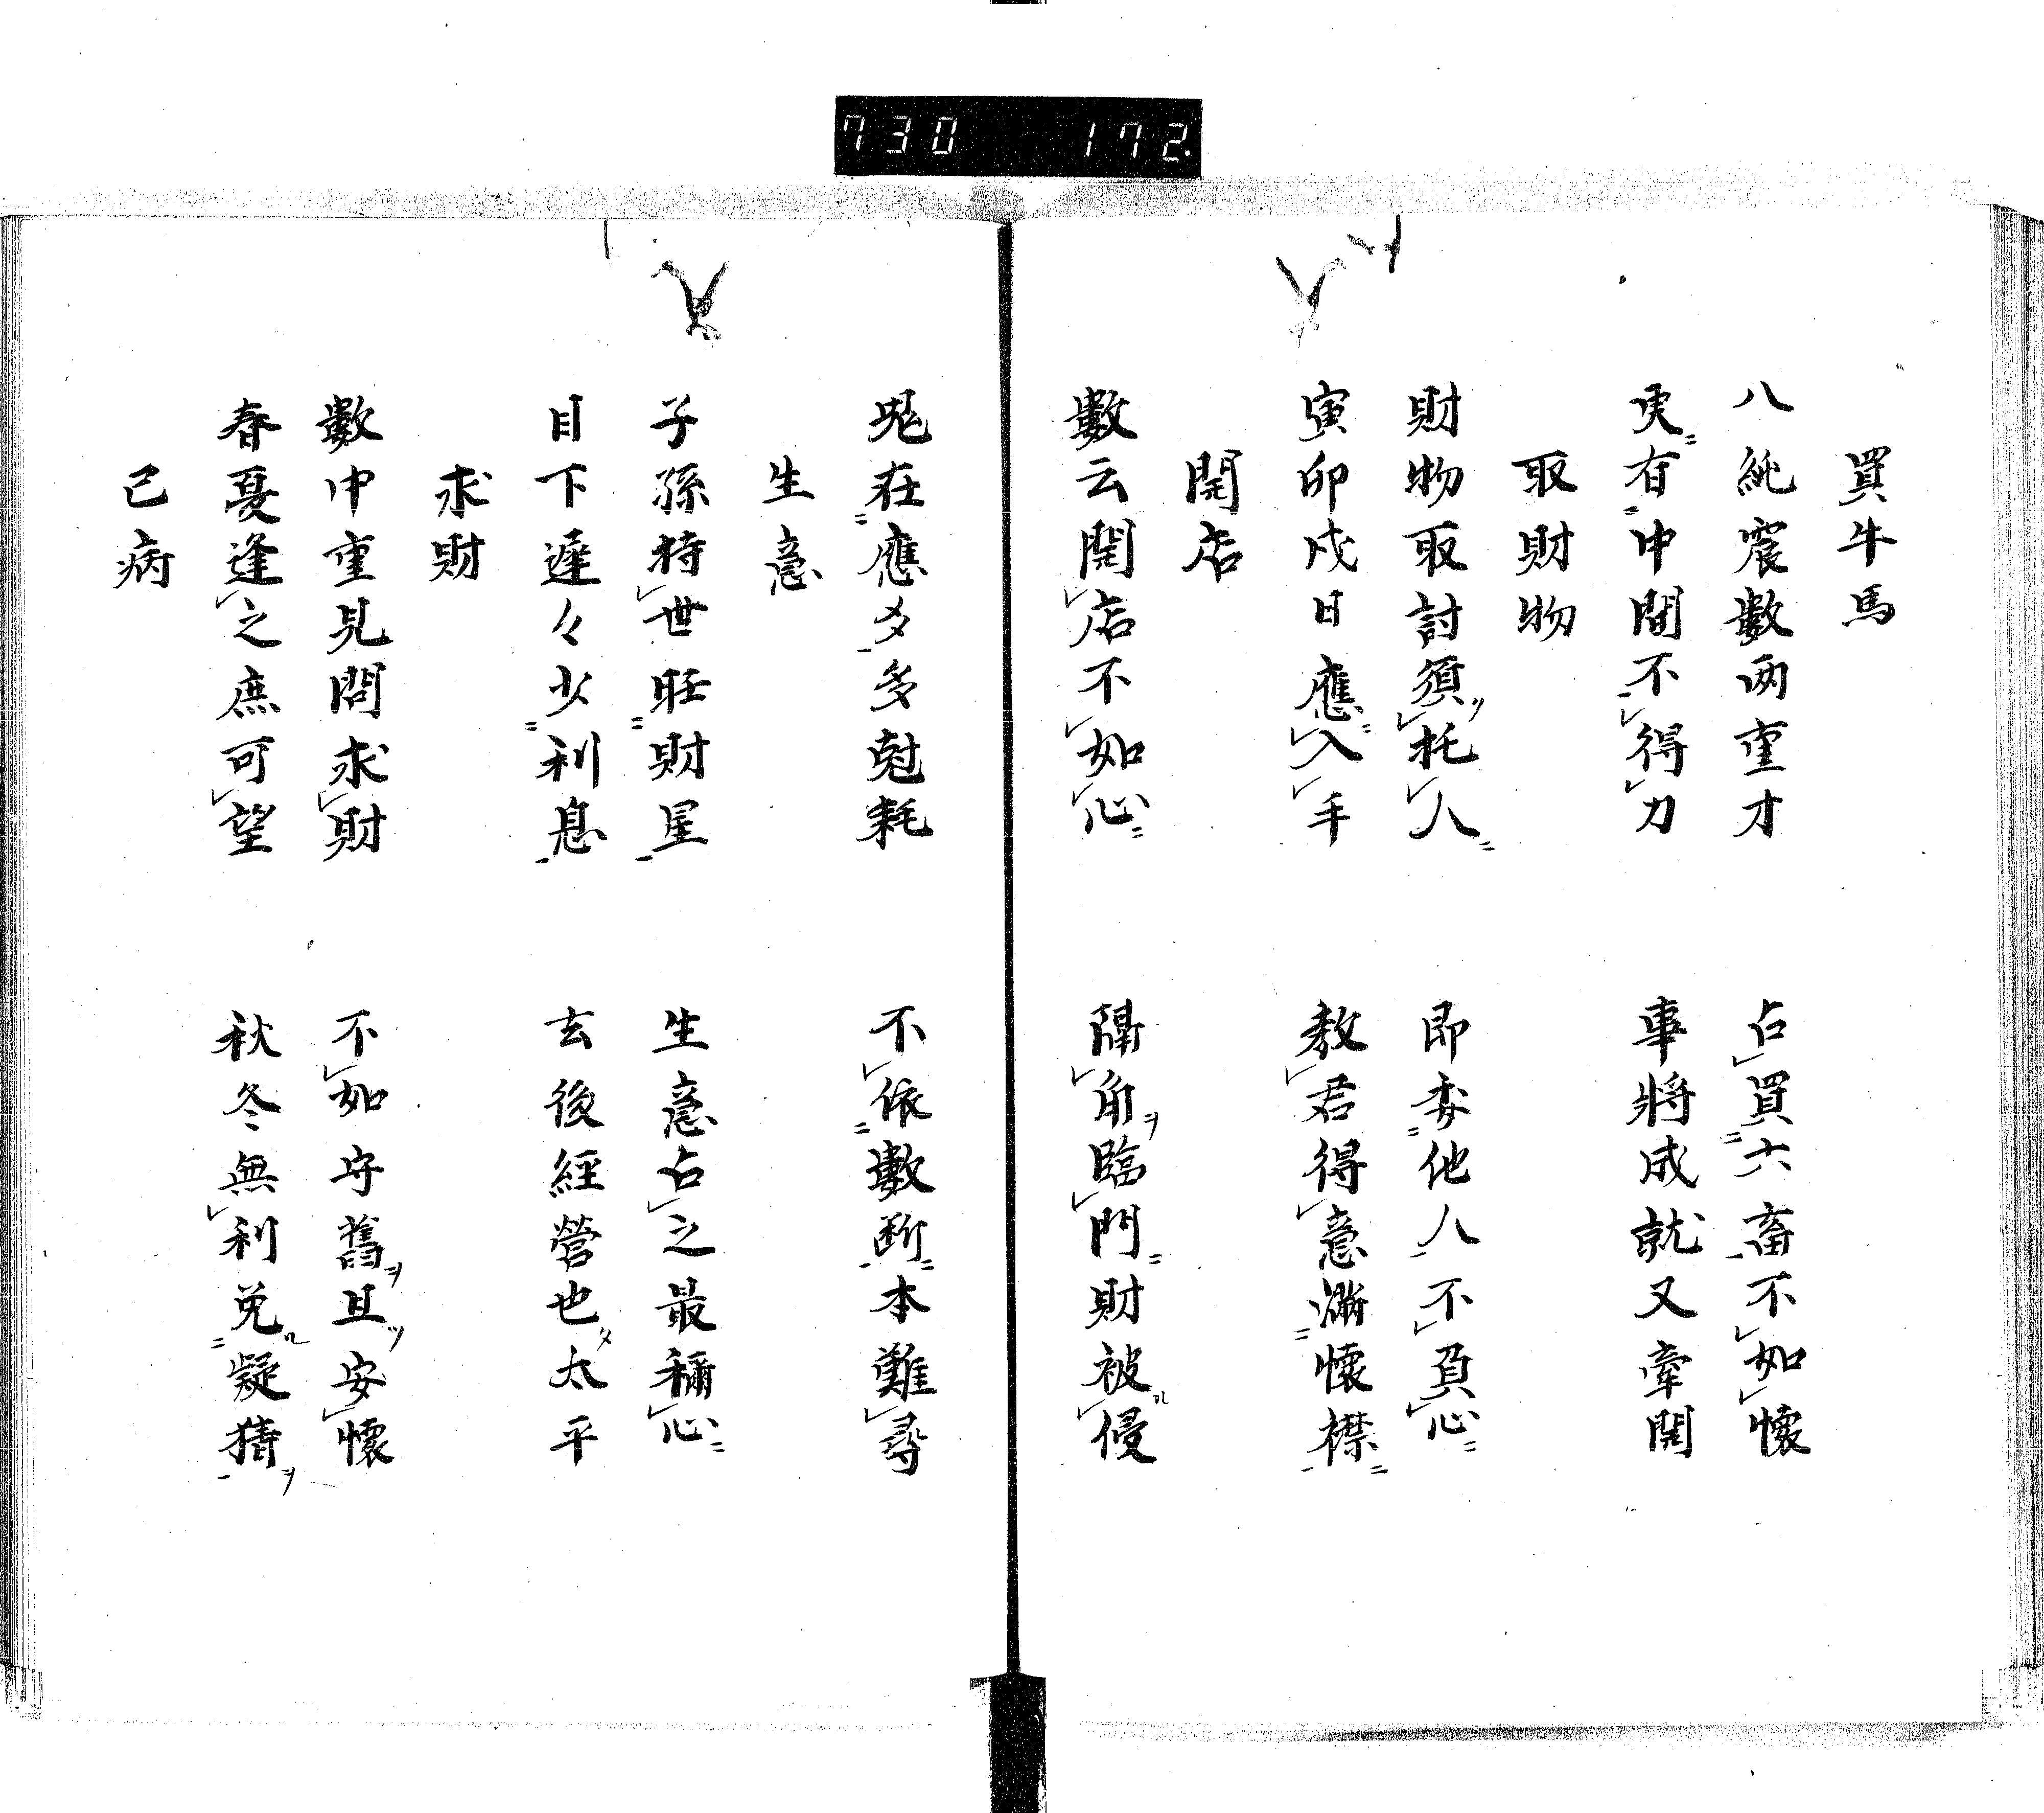 730 172
買牛馬
八純震數両重才 占買六畜不如懷
更有中間不得力 事將成就又牽関
取財物
財物取討須托人 即委他人不負心
寅卯戌日應入手 教君得意滿懷襟
開店
數云開店不如心 隅角臨門財被侵
鬼在應爻多尅耗 不依數断本難尋
生意
子孫持世旺財星 生意占之最稱心
目下遲々少利息 去後經營也太平
求財
數中重見問求財 不如守舊且安懷
春夏逢之庶可望 秋冬無利免疑猜
已病